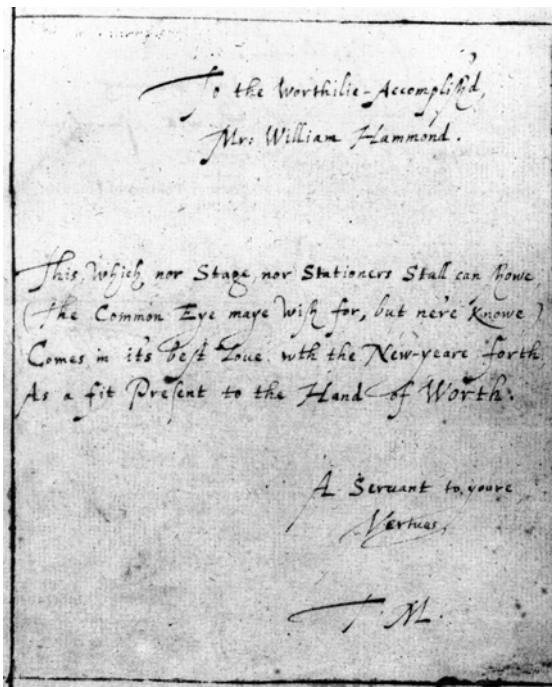 To the Worthilie-Accomplish'd,
Mr: William Hammond.
This, which nor Stage, nor Stationers Stall can showe,
(The Common Eye maye wish for, but ne're knowe)
Comes in it's best Loue, wth the New-yeare forth,
As a fit Present to the Hand of Worth.
A Seruant to youre
Vertues,
T. M.